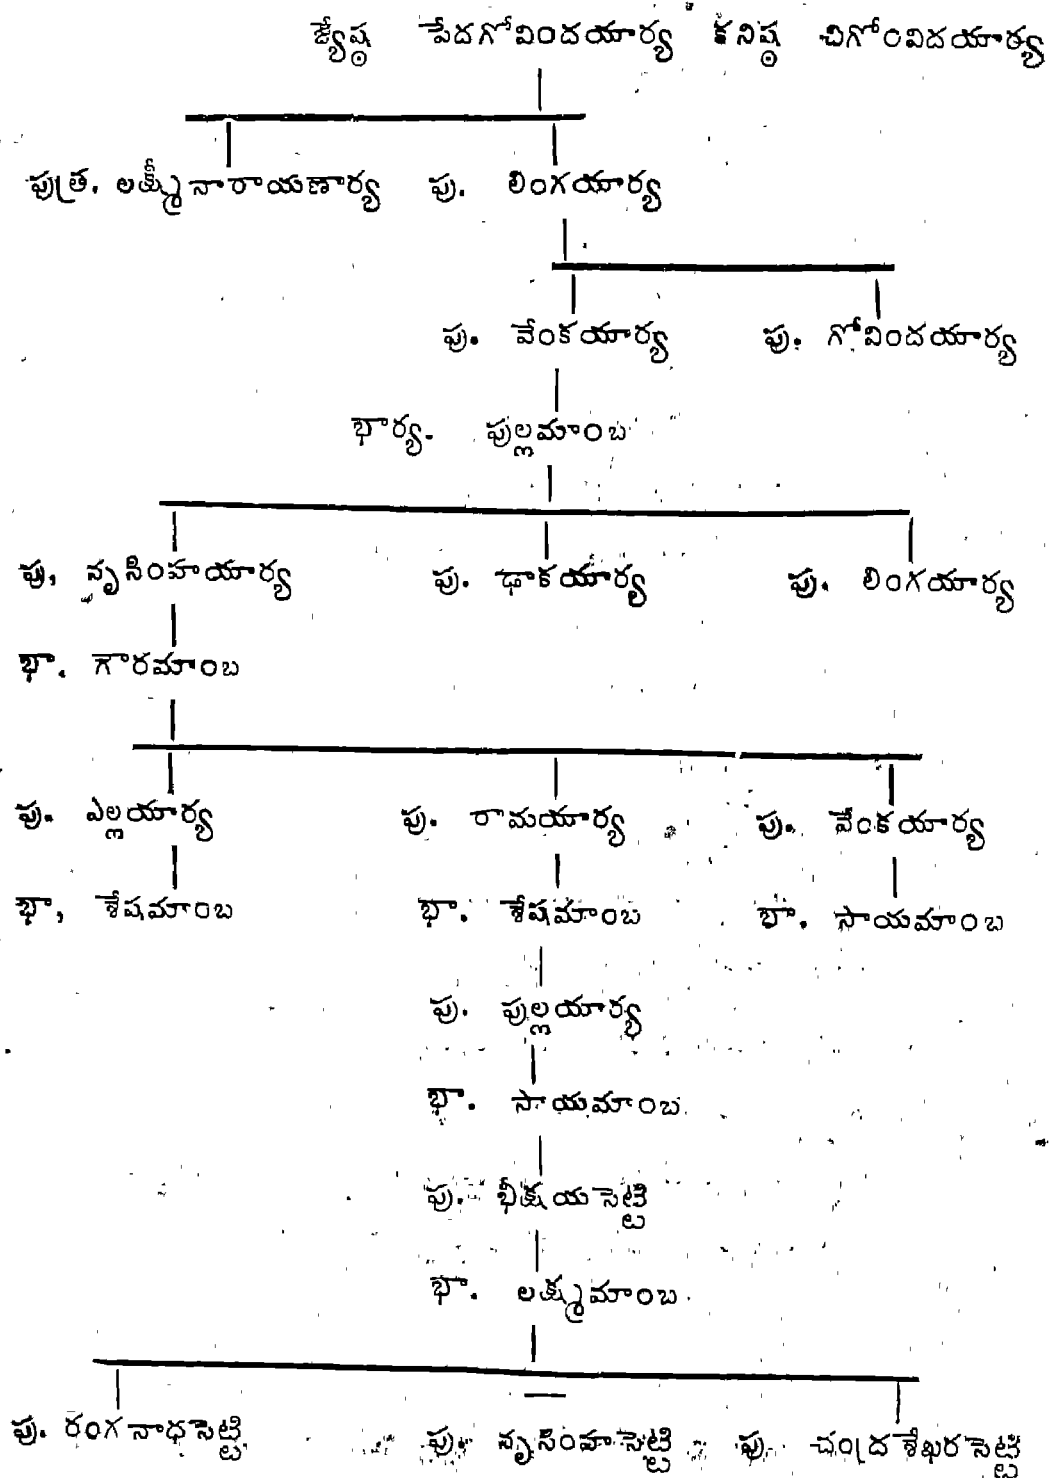 జ్యేష్ఠ పేదగోవిందయార్య కనిష్ఠ చిగోంవిదయార్య
పుత్ర. లక్ష్మీనారాయణార్య పు. లింగయార్య
పు. వేంకయార్య పు. గోవిందయార్య
భార్య. పుల్లమాంబ
పు, నృసింహయార్య పు. ఢాకయార్య పు. లింగయార్య
భా. గౌరమాంబ
పు. ఎల్లయార్య పు. రామయార్య పు. వేంకయార్య
భా, శేషమాంబ భా. శేషమాంబ భా. సాయమాంబ
పు. పుల్లయార్య
భా. సాయమాంబ
పు. భీక్షయసెట్టి
భా. లక్ష్మమాంబ
పు. రంగనాధసెట్టి పు. నృసింహసెట్టి పు. చంద్రశేఖరసెట్టి